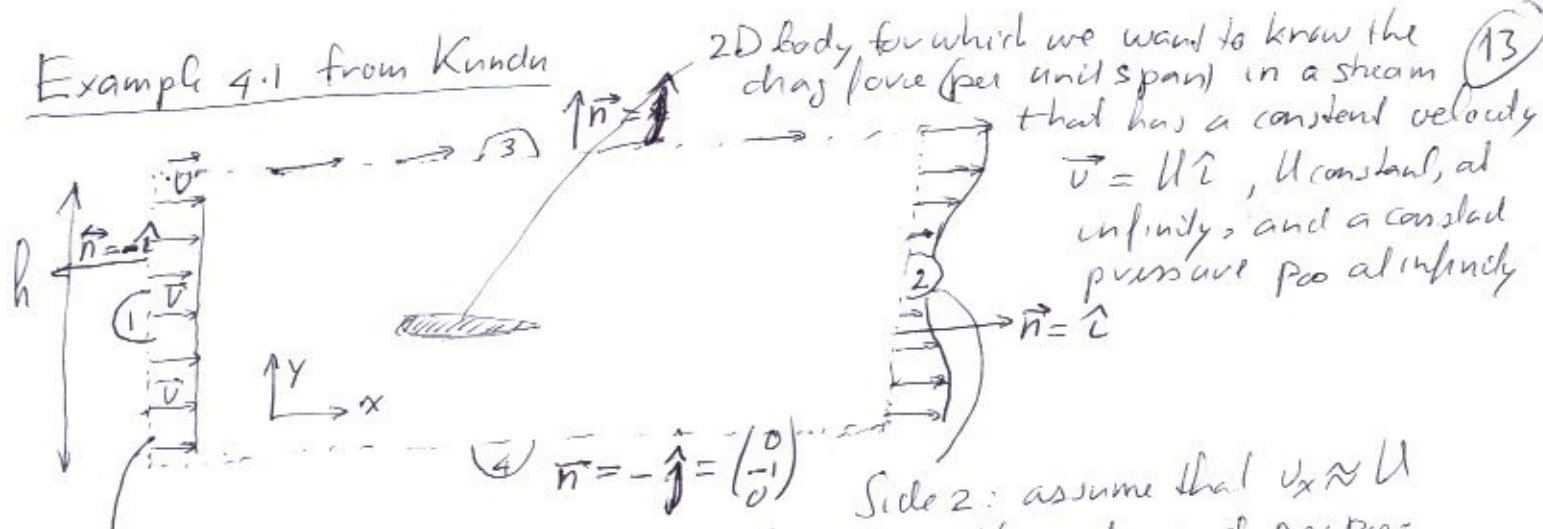 Example 4.1 from Kundu
2D body for which we want to know the
drag force (per unit span) in a stream
that has a constant velocity
13
v = U î, U constant, at
infinity, and a constant
pressure p∞ at infinity
n =
3
v
h
n = -î
v
1
v
y
x
2
n = î
4
n = -ĵ = (0 -1 0)
Side 2: assume that vx ≈ U